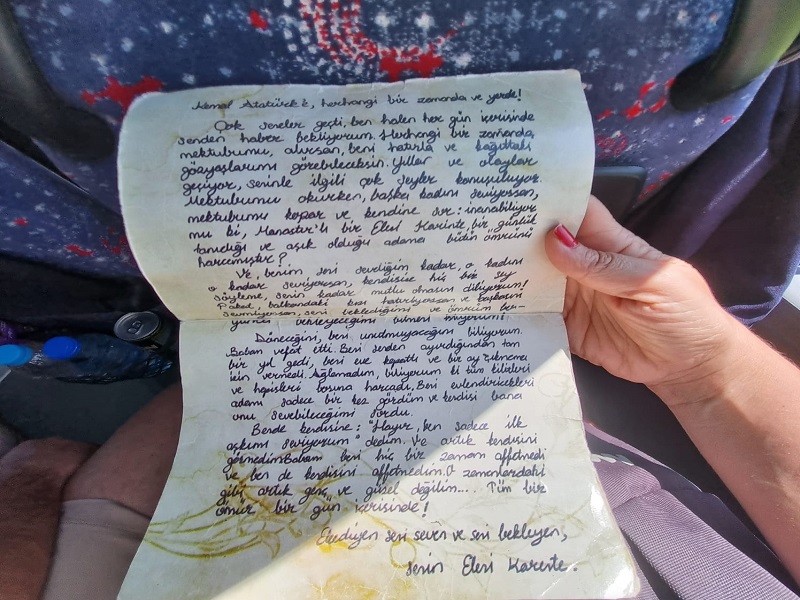 Kemal Atatürk'e, herhangi bir zamanda ve yerde!
Çok seneler geçti, ben halen her gün içerisinde
senden haber bekliyorum. Herhangi bir zamanda
mektubumu, alırsan, beni hatırla ve kağıttaki
gözyaşlarımı görebileceksin. Yıllar ve olaylar
geçiyor, seninle ilgili çok şeyler konuşuluyor.
Mektubumu okurken, başka kadını seviyorsan,
mektubumu kopar ve kendine sor: inanabiliyor
mu ki, Manastır'lı bir Eleni Karinte, bir günlük
tanıdığı ve aşık olduğu adama bütün ömrünü
harcamıştır?
Ve, benim seni sevdiğim kadar, o kadını
o kadar seviyorsan, kendisine hiç bir şey
söyleme, senin kadar mutlu olmasını diliyorum!
Fakat, balkondaki kızı hatırlıyorsan ve başkasını
sevmiyorsan, seni beklediğimi ve ömrüm bo-
yunca bekleyeceğimi bilmeni istiyorum!
Döneceğini, beni unutmayacağını biliyorum.
Babam vefat etti. Beni senden ayırdığından tam
bir yıl geçti, beni eve kapattı ve bir ay çıkmama
izin vermedi. Ağlamadım, biliyorum ki tüm kilitleri
ve hapisleri boşuna harcadı. Beni evlendirecekleri
adamı sadece bir kez gördüm ve kendisi bana
onu sevebileceğimi sordu.
Bende kendisine: "Hayır, ben sadece ilk
aşkımı seviyorum" dedim. Ve artık kendisini
görmedim. Babam beni hiç bir zaman affetmedi
ve ben de kendisini affetmedim. O zamanlardaki
gibi artık genç ve güzel değilim.... Tüm bir
ömür bir gün içerisinde!
Ebediyen seni seven ve seni bekleyen,
Senin Eleni Karinte.